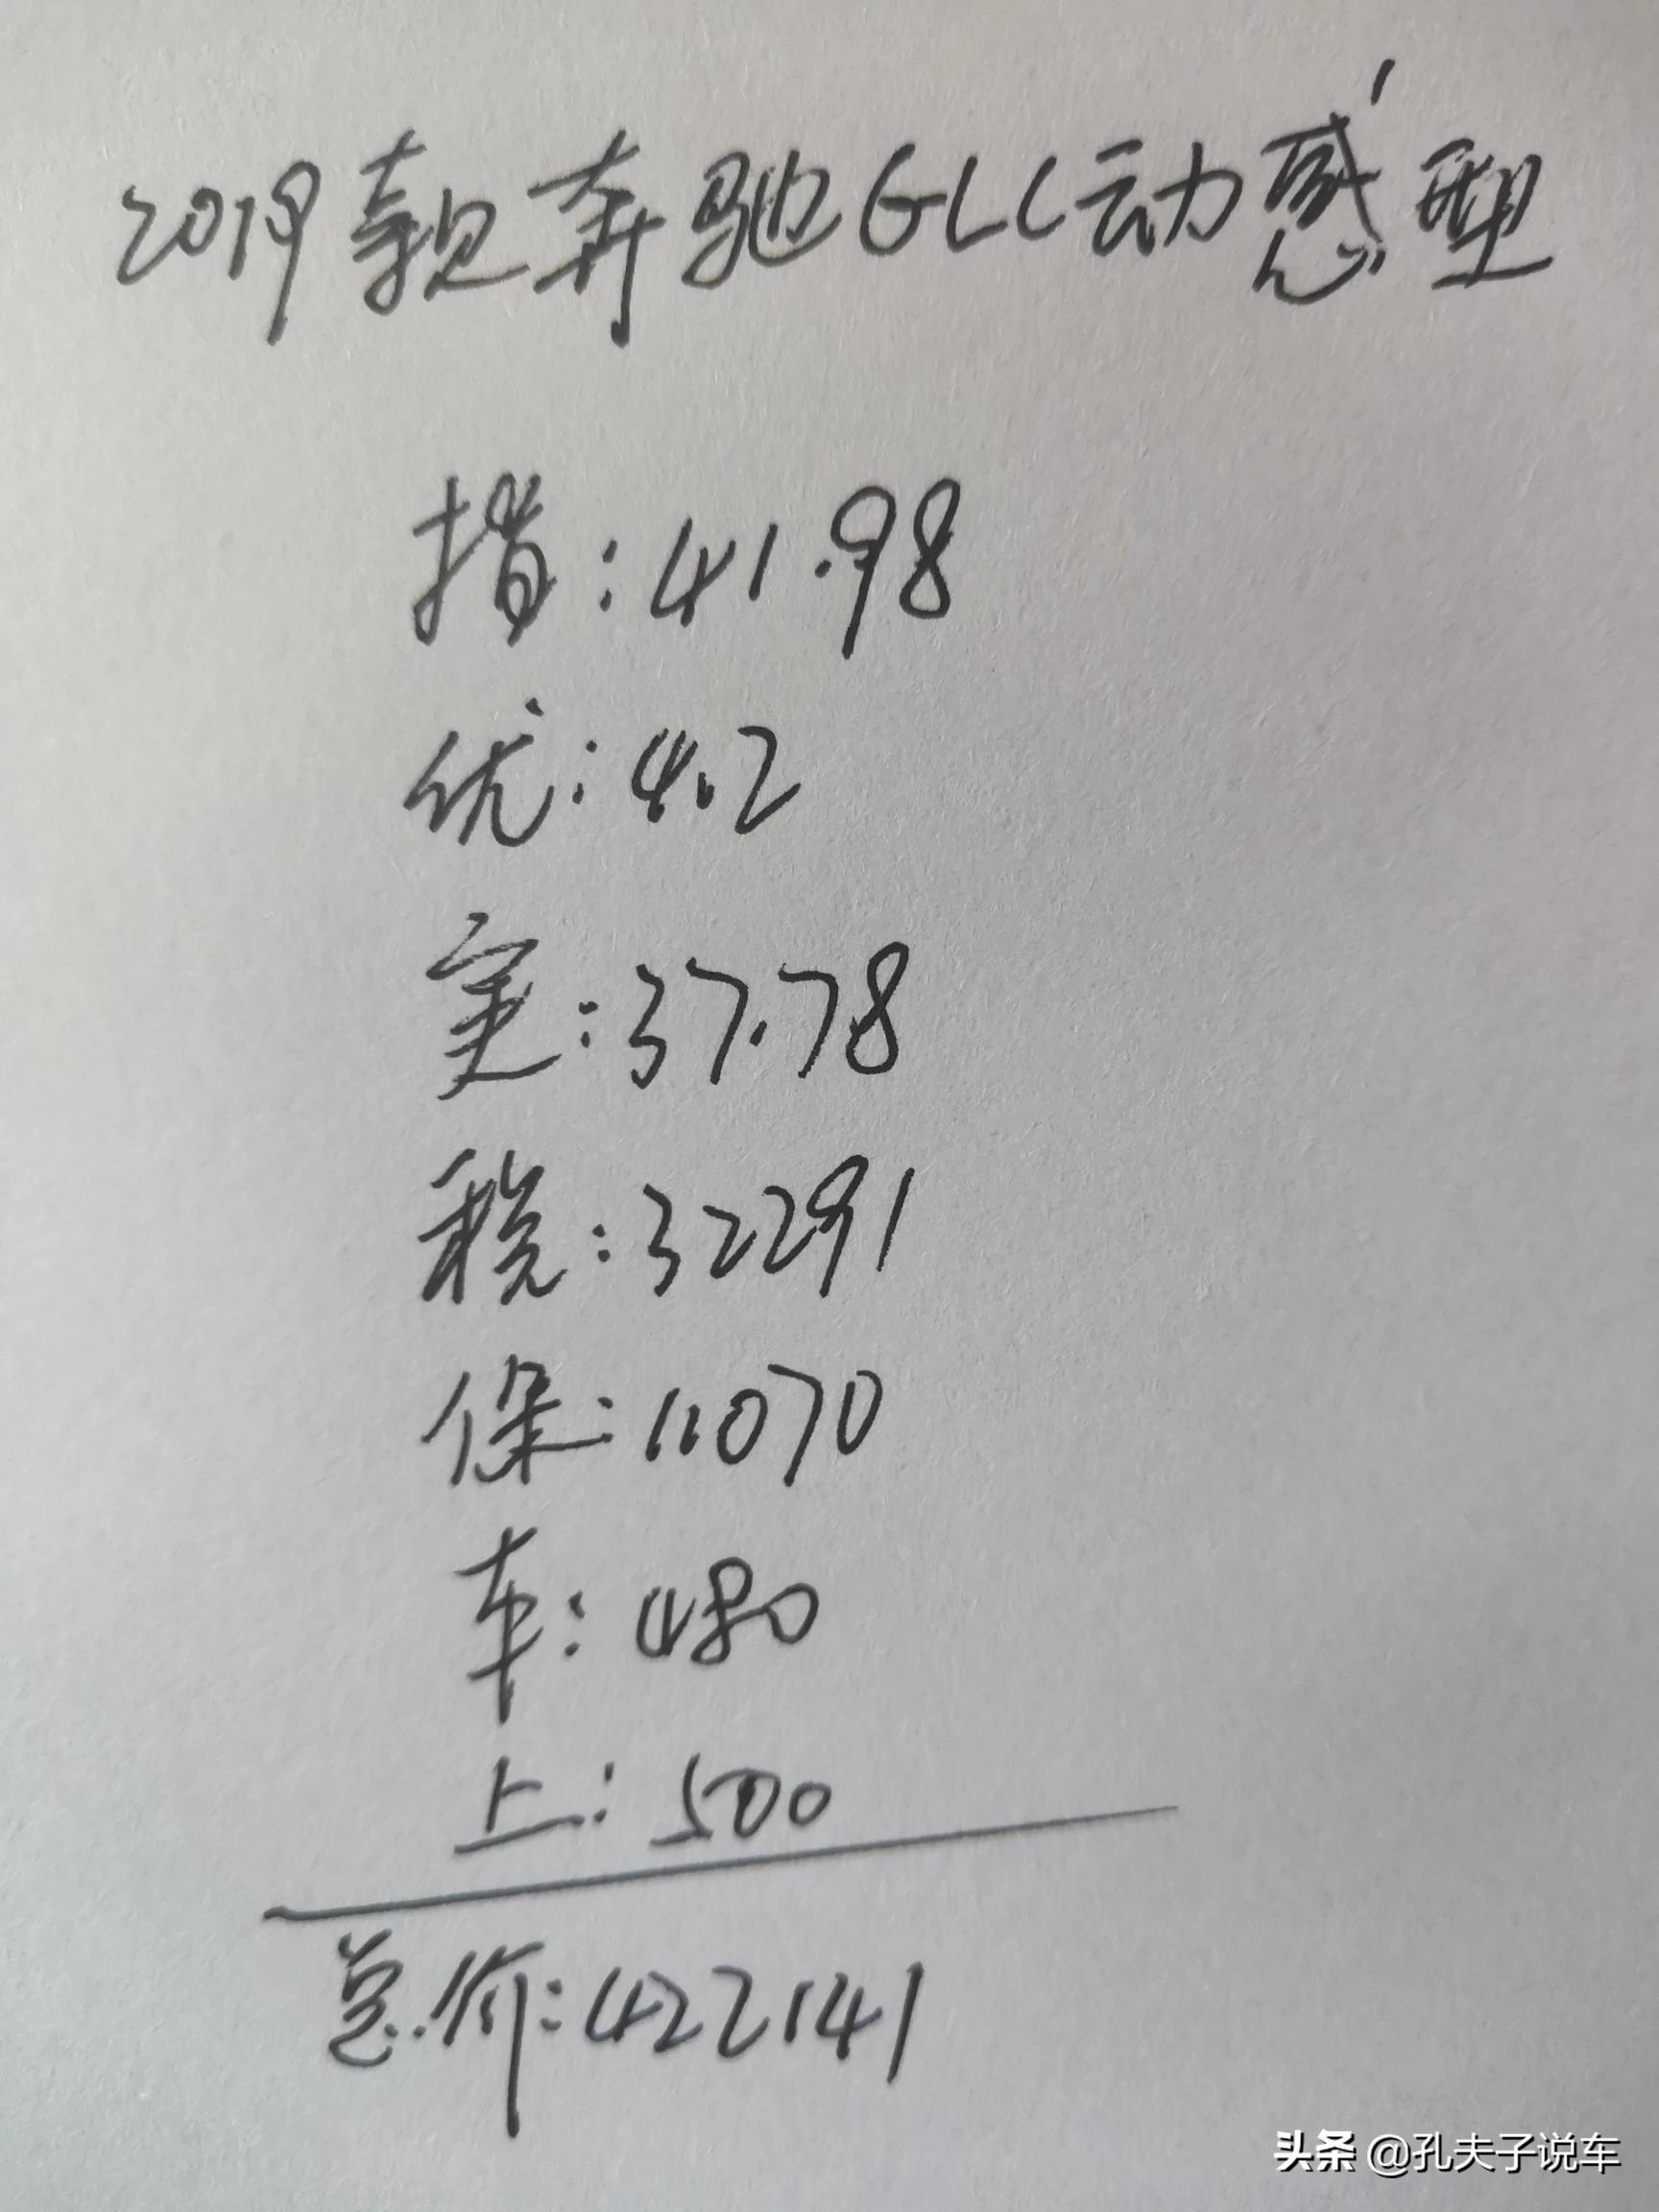 2019款奔驰GLC动感型
指:41.98
优:4.2
实:37.78
税:32291
保:11070
车:480
上:500
总价:422141
头条 @孔夫子说车